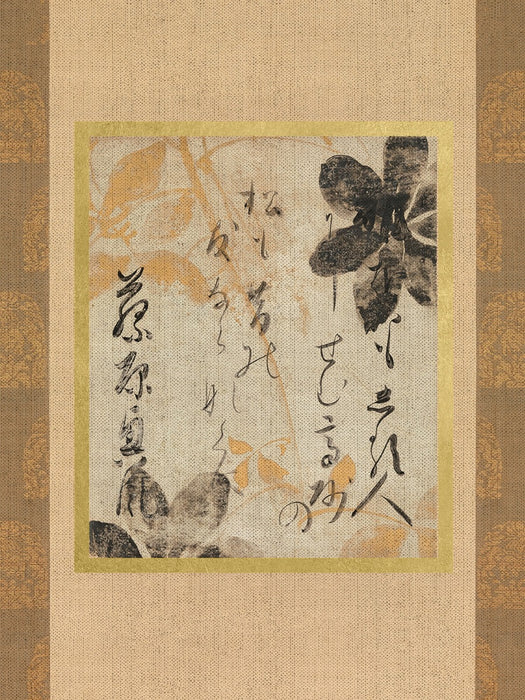 誰をかも志る人
にせむ高砂
の
松も昔の
友ならなくに
藤原興風